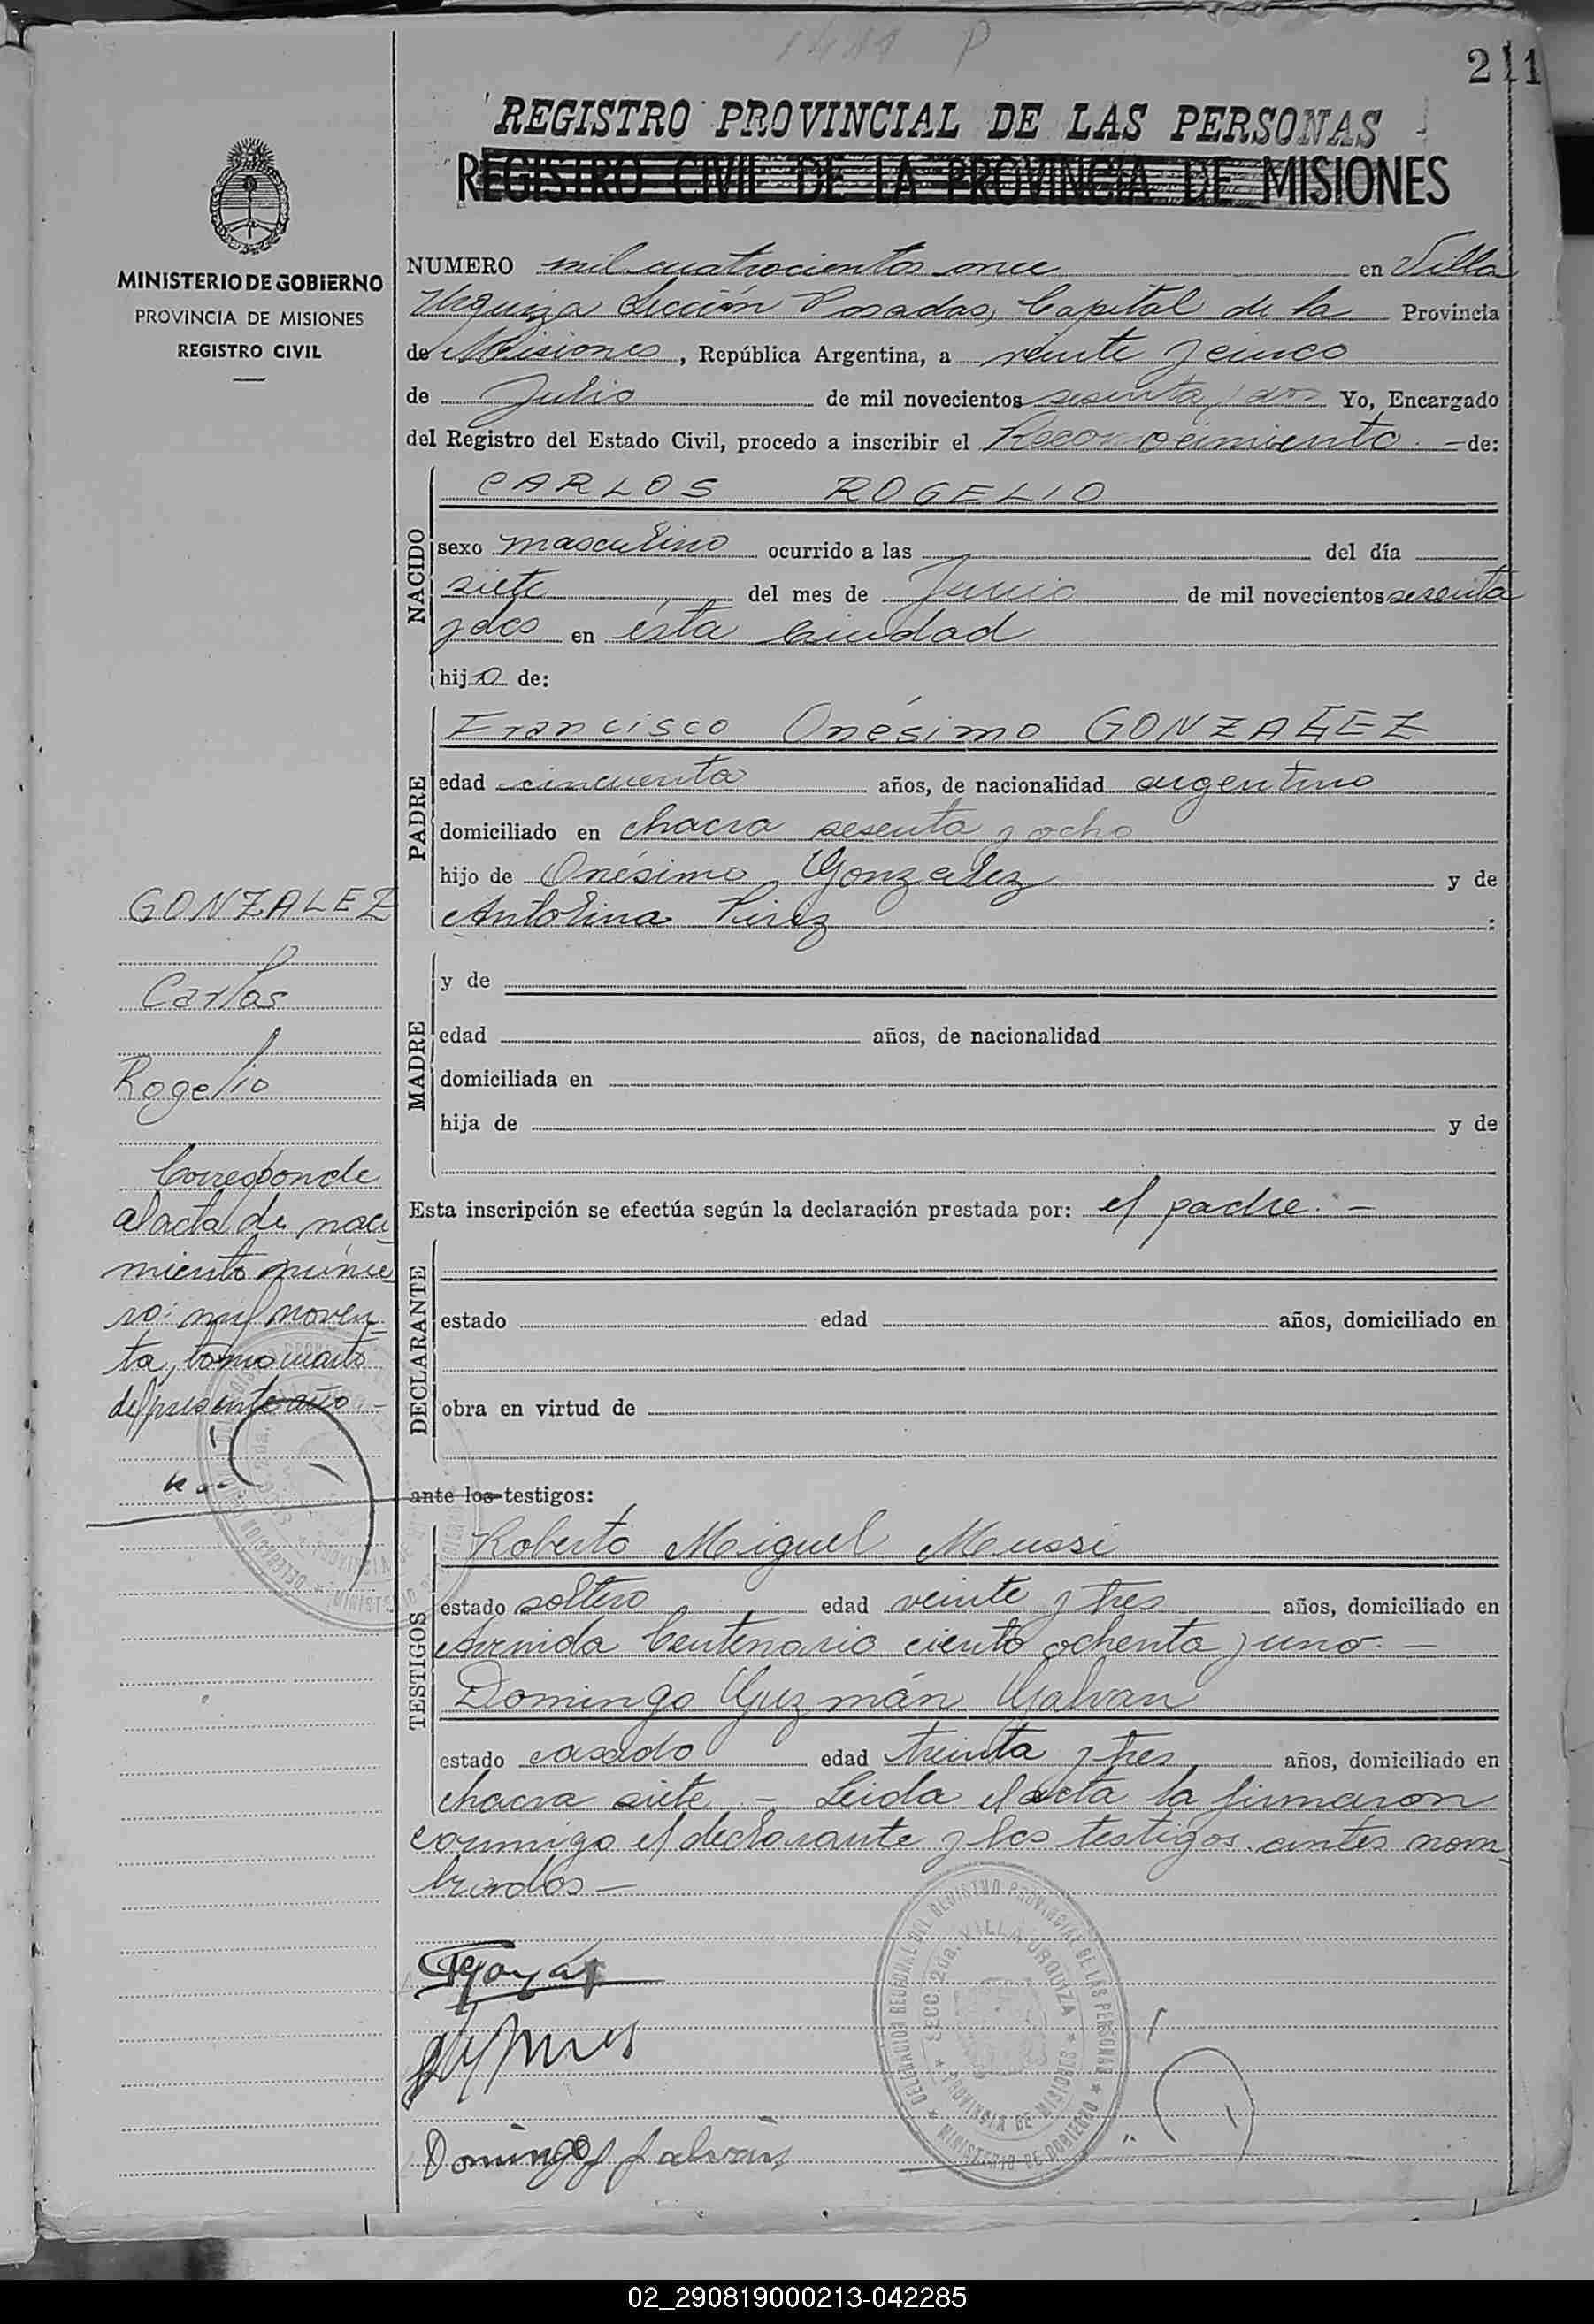 1411 P
211
REGISTRO PROVINCIAL DE LAS PERSONAS
REGISTRO CIVIL DE LA PROVINCIA DE MISIONES
MINISTERIO DE GOBIERNO
PROVINCIA DE MISIONES
REGISTRO CIVIL
NUMERO mil cuatrocientos once en Villa
Urquiza Sección Posadas, Capital de la Provincia
de Misiones, República Argentina, a veinte y cinco
de Julio de mil novecientos sesenta y dos Yo, Encargado
del Registro del Estado Civil, procedo a inscribir el Reconocimiento.- de:
NACIDO
CARLOS ROGELIO
sexo masculino ocurrido a las del día
siete del mes de Junio de mil novecientos sesenta
y dos en ésta Ciudad
hijo de:
PADRE
Francisco Onésimo GONZALEZ
edad cincuenta años, de nacionalidad argentino
domiciliado en chacra sesenta y ocho
hijo de Onésimo Gonzalez y de
Antolina Pirez :
MADRE
y de
edad años, de nacionalidad
domiciliada en
hija de y de
Esta inscripción se efectúa según la declaración prestada por: el padre.-
DECLARANTE
estado edad años, domiciliado en
obra en virtud de
ante los testigos:
TESTIGOS
Roberto Miguel Meussi
estado soltero edad veinte y tres años, domiciliado en
Avenida Centenario ciento ochenta y uno.-
Domingo Guzmán Galvan
estado casado edad treinta y tres años, domiciliado en
chacra siete - Leida el acta la firmaron
conmigo el declarante y los testigos antes nom
brados -
GONZALEZ
Carlos
Rogelio
Corresponde
al acta de naci
miento núme
ro: mil noven
ta, tomo cuarto
del presente año -
DELEGACION REGIONAL DEL REGISTRO PROVINCIAL DE LAS PERSONAS
SECC. 2da. VILLA URQUIZA
PROVINCIA DE MISIONES
MINISTERIO DE GOBIERNO
Domingo Galván
02_290819000213-042285